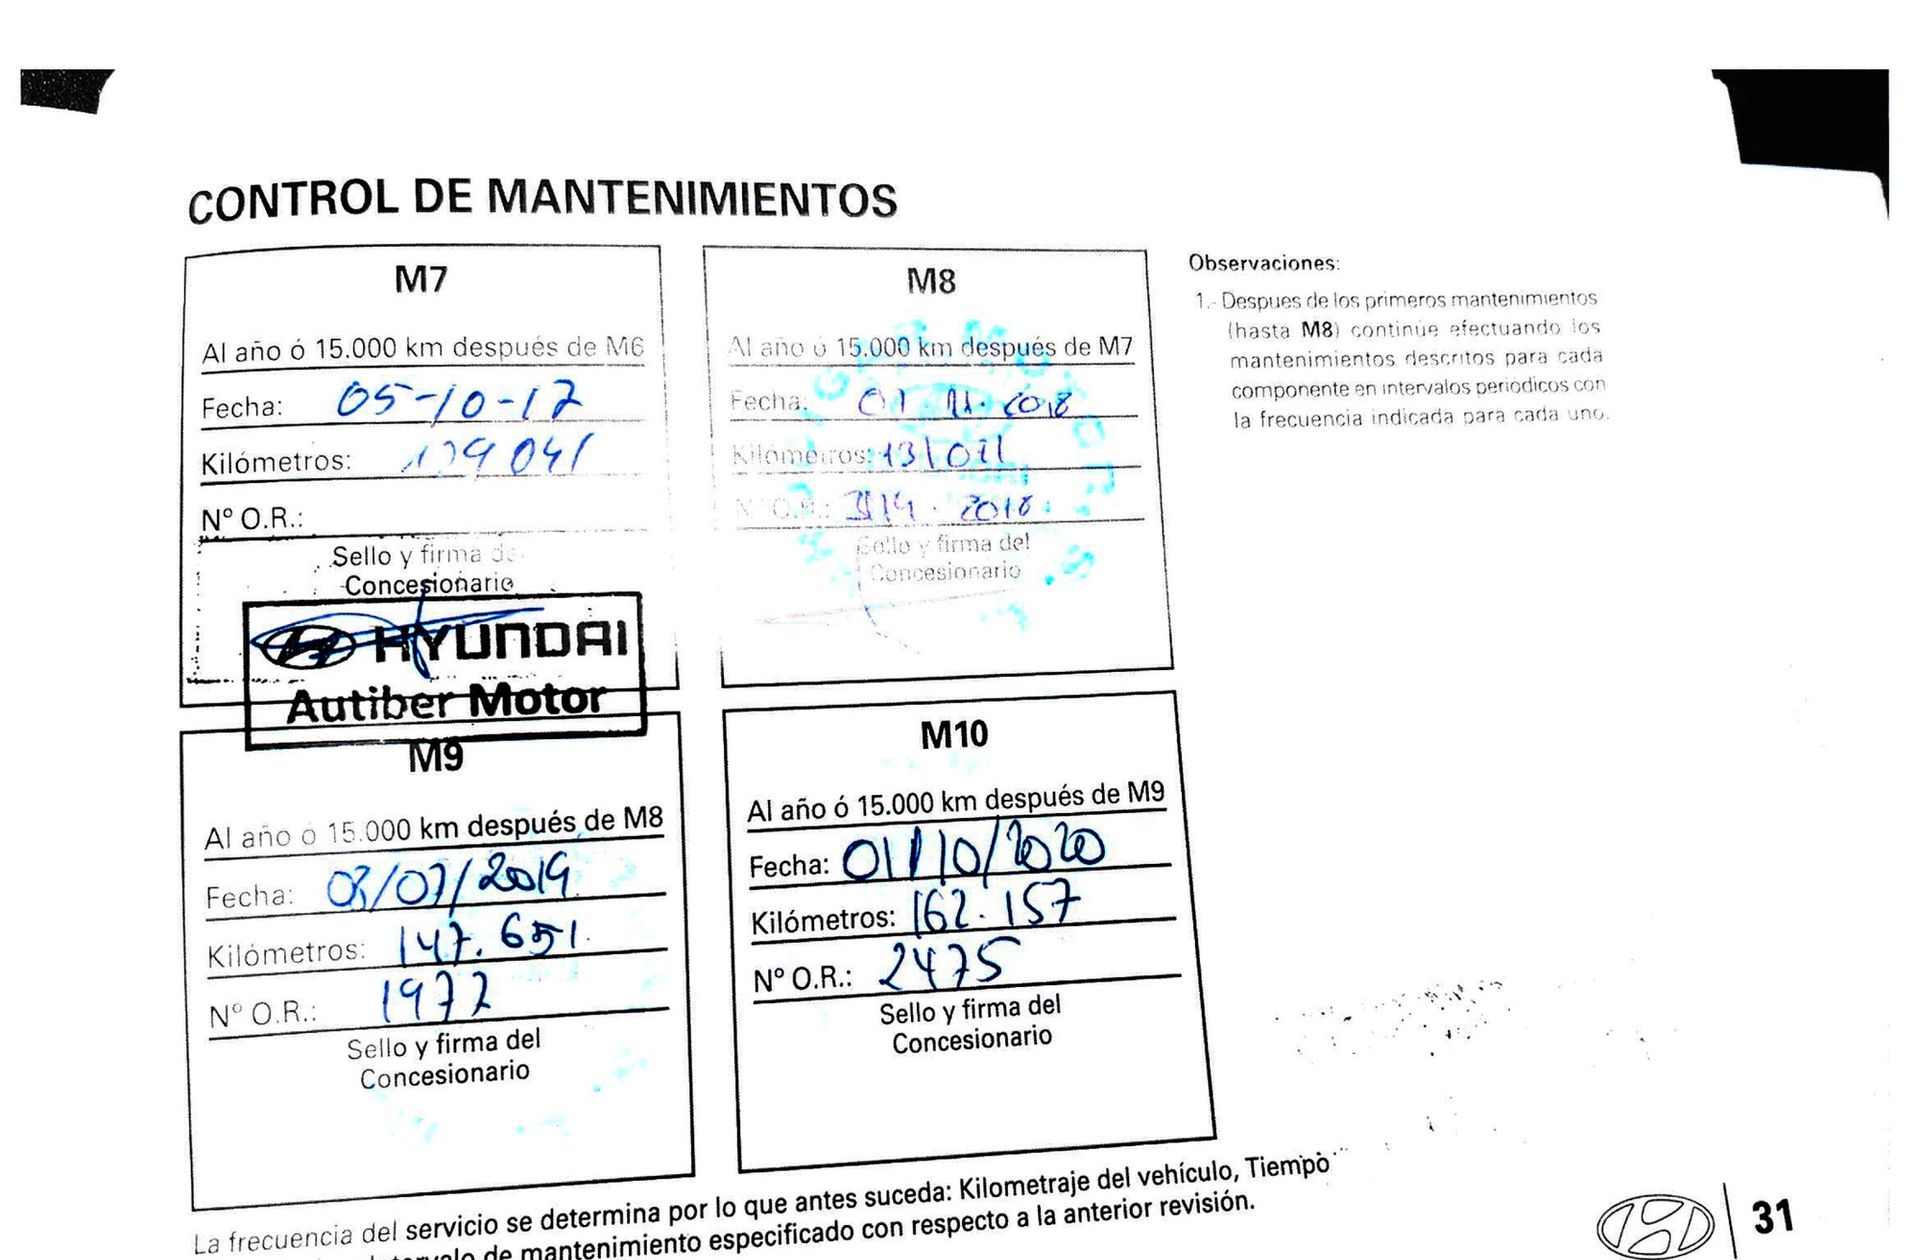 CONTROL DE MANTENIMIENTOS
M7
Al año ó 15.000 km después de M6
Fecha: 05-10-17
Kilómetros: 041
Nº O.R.:
Sello y firma de
Concesionario
HYUNDAI
Autiber Motor
M8
Al año ó 15.000 km después de M7
Fecha: 01.11.2018
Kilómetros: 131071
Nº O.R.: 3114. 2018
Sello y firma del
Concesionario
M9
Al año ó 15.000 km después de M8
Fecha: 03/07/2019
Kilómetros: 147.651
Nº O.R.: 1977
Sello y firma del
Concesionario
M10
Al año ó 15.000 km después de M9
Fecha: 01/10/2020
Kilómetros: 162.157
Nº O.R.: 2475
Sello y firma del
Concesionario
Observaciones:
1.- Despues de los primeros mantenimientos
(hasta M8) continúe efectuando los
mantenimientos descritos para cada
componente en intervalos periódicos con
la frecuencia indicada para cada uno.
La frecuencia del servicio se determina por lo que antes suceda: Kilometraje del vehículo, Tiempo
de mantenimiento especificado con respecto a la anterior revisión.
31